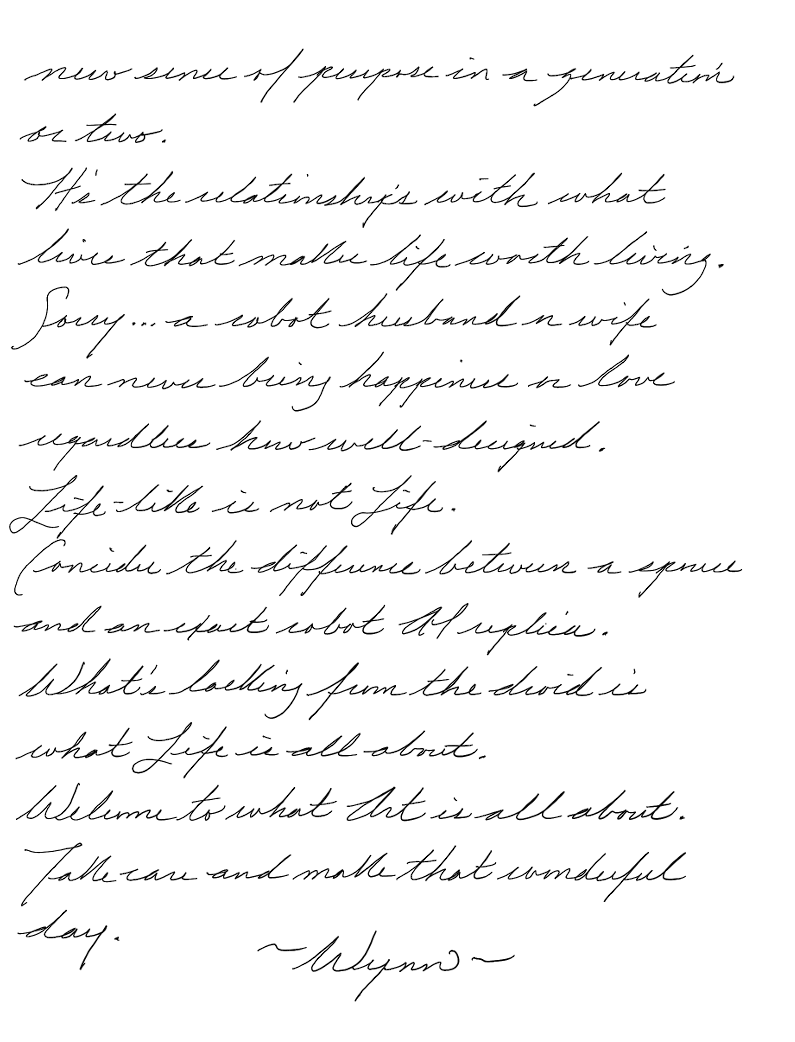 new sense of purpose in a generation
or two.
It's the relationships with what
lives that make life worth living.
Sorry... a robot husband or wife
can never bring happiness or love
regardless how well-designed.
Life-like is not Life.
Consider the difference between a spouse
and an exact robot AI replica.
What's lacking from the droid is
what Life is all about.
Welcome to what Art is all about.
Take care and make that wonderful
day.
~Wynn~